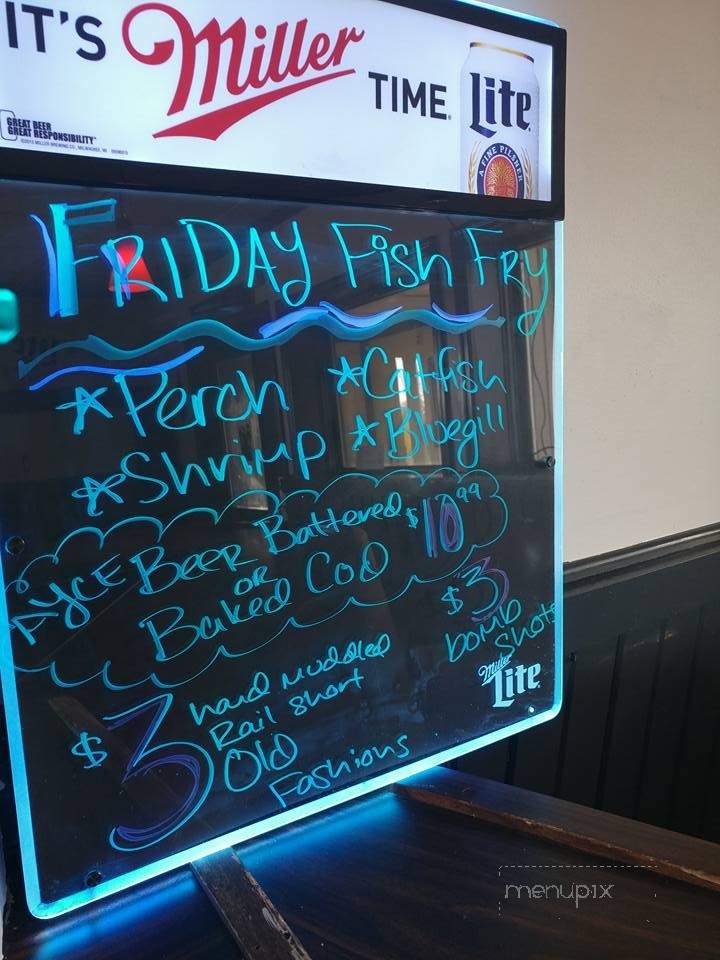 IT'S Miller TIME. Lite
A FINE PILSNER
GREAT BEER
GREAT RESPONSIBILITY
FRIDAY Fish FRY
*Perch *Catfish
*Shrimp *Bluegill
AYCE Beer Battered $10.99
OR
Baked Cod
$3 bomb shots
$3 hand muddled
Rail short
Old
Fashions
Miller Lite
menupix